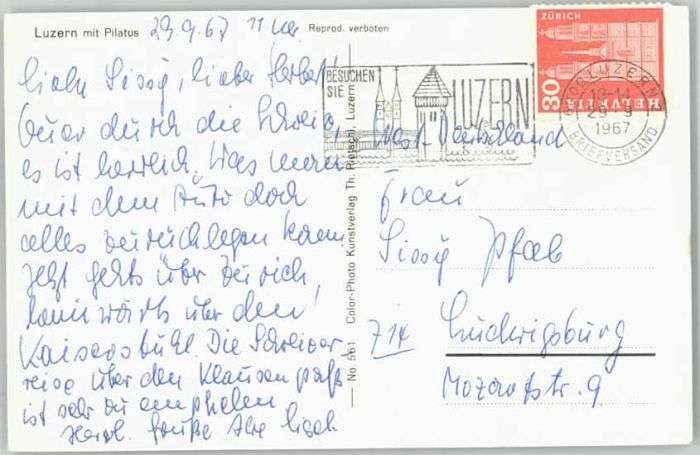 Luzern mit Pilatus 29.9.67 11 Uhr Reprod. verboten
Liebe Sissy, lieber Herbert!
Quer durch die Schweiz,
es ist herrlich. Was man
mit dem Auto doch
alles zurücklegen kann
Jetzt gehts über Zürich,
heimwärts über den
Kaiserstuhl. Die Schweizer
reise über den Klausenpaß
ist sehr zu empfehlen
Herzl. Grüße
No. 561 Color-Photo Kunstverlag Th. Pietschi, Luzern
BESUCHEN
SIE
LUZERN
ZÜRICH
30
HELVETIA
LUZERN
29-9
1967
BRIEFVERSAND
West-Deutschland
Frau
Sissy Pfab
714 Ludwigsburg
Mozartstr. 9